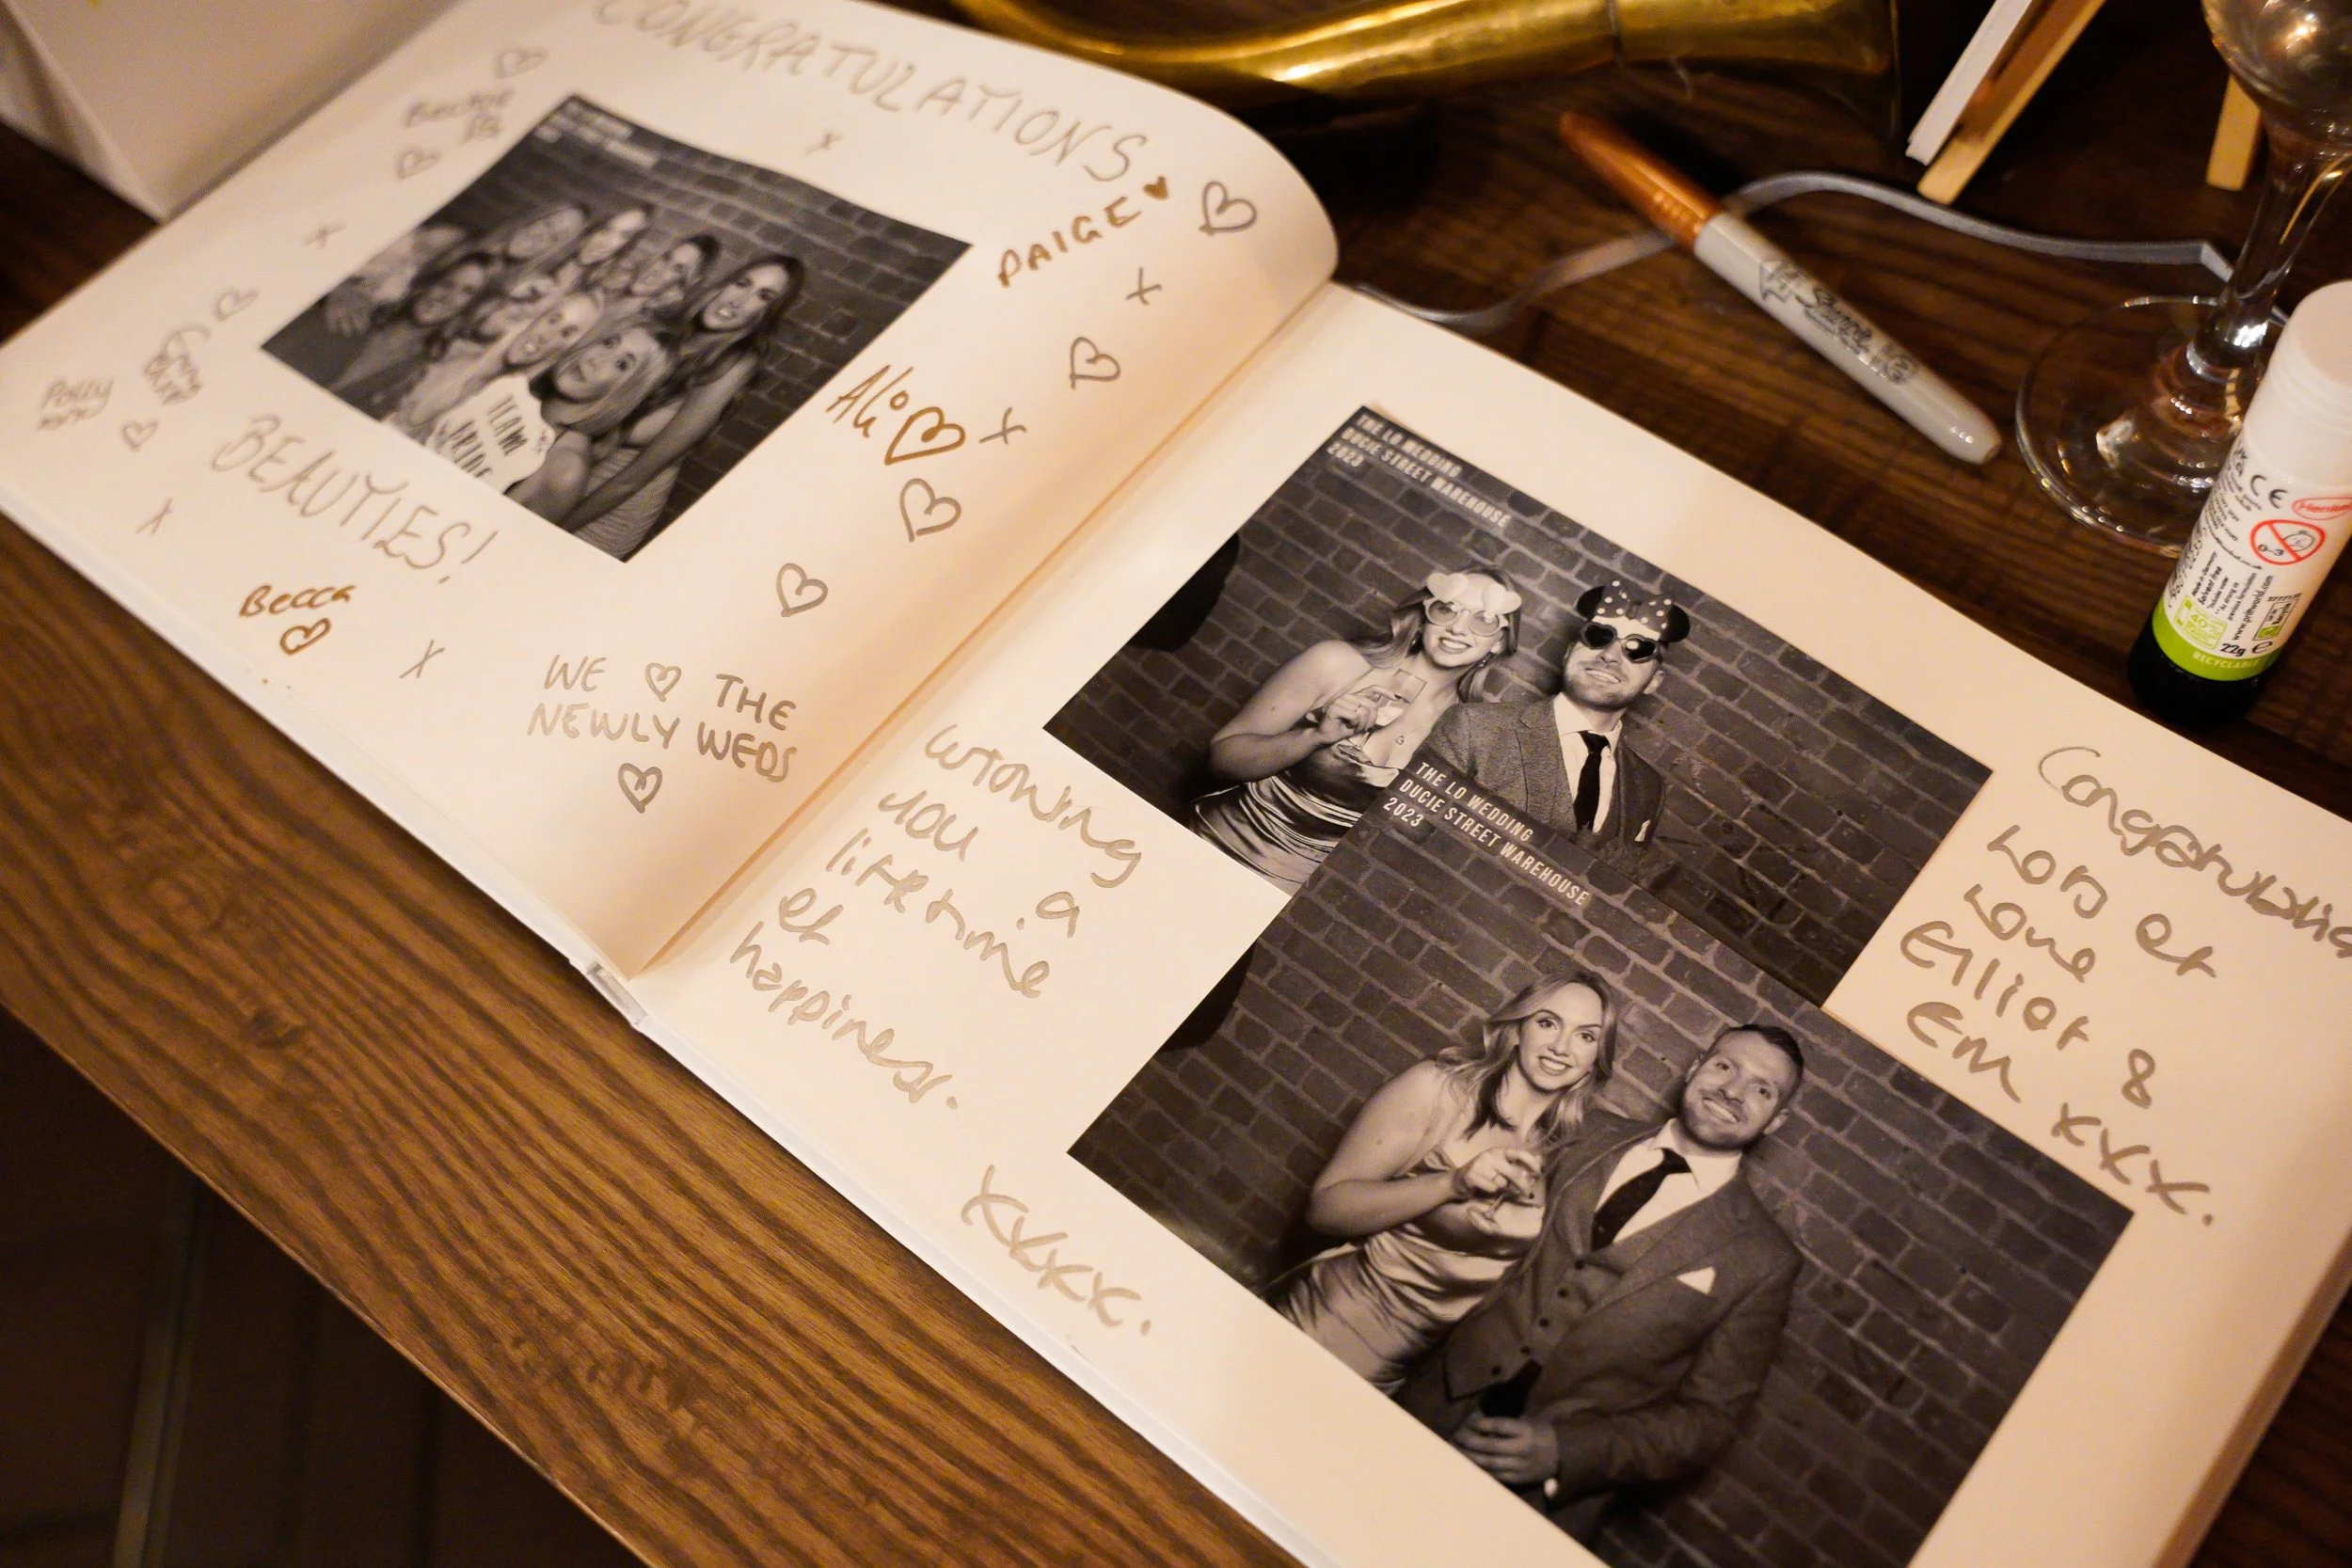 CONGRATULATIONS
PAIGE
Ali
TEAM
BRIDE
Polly
BEAUTIES!
Becca
WE THE
NEWLY WEDS
THE LO WEDDING
DUCIE STREET WAREHOUSE
2023
THE LO WEDDING
DUCIE STREET WAREHOUSE
2023
you a
lifetime
of
happiness.
xxxx.
Congratulations
Lots of
Love
Elliot &
Em xxx.
Sharpie
CE
0-3
40%
22g e
RECYCLABLE